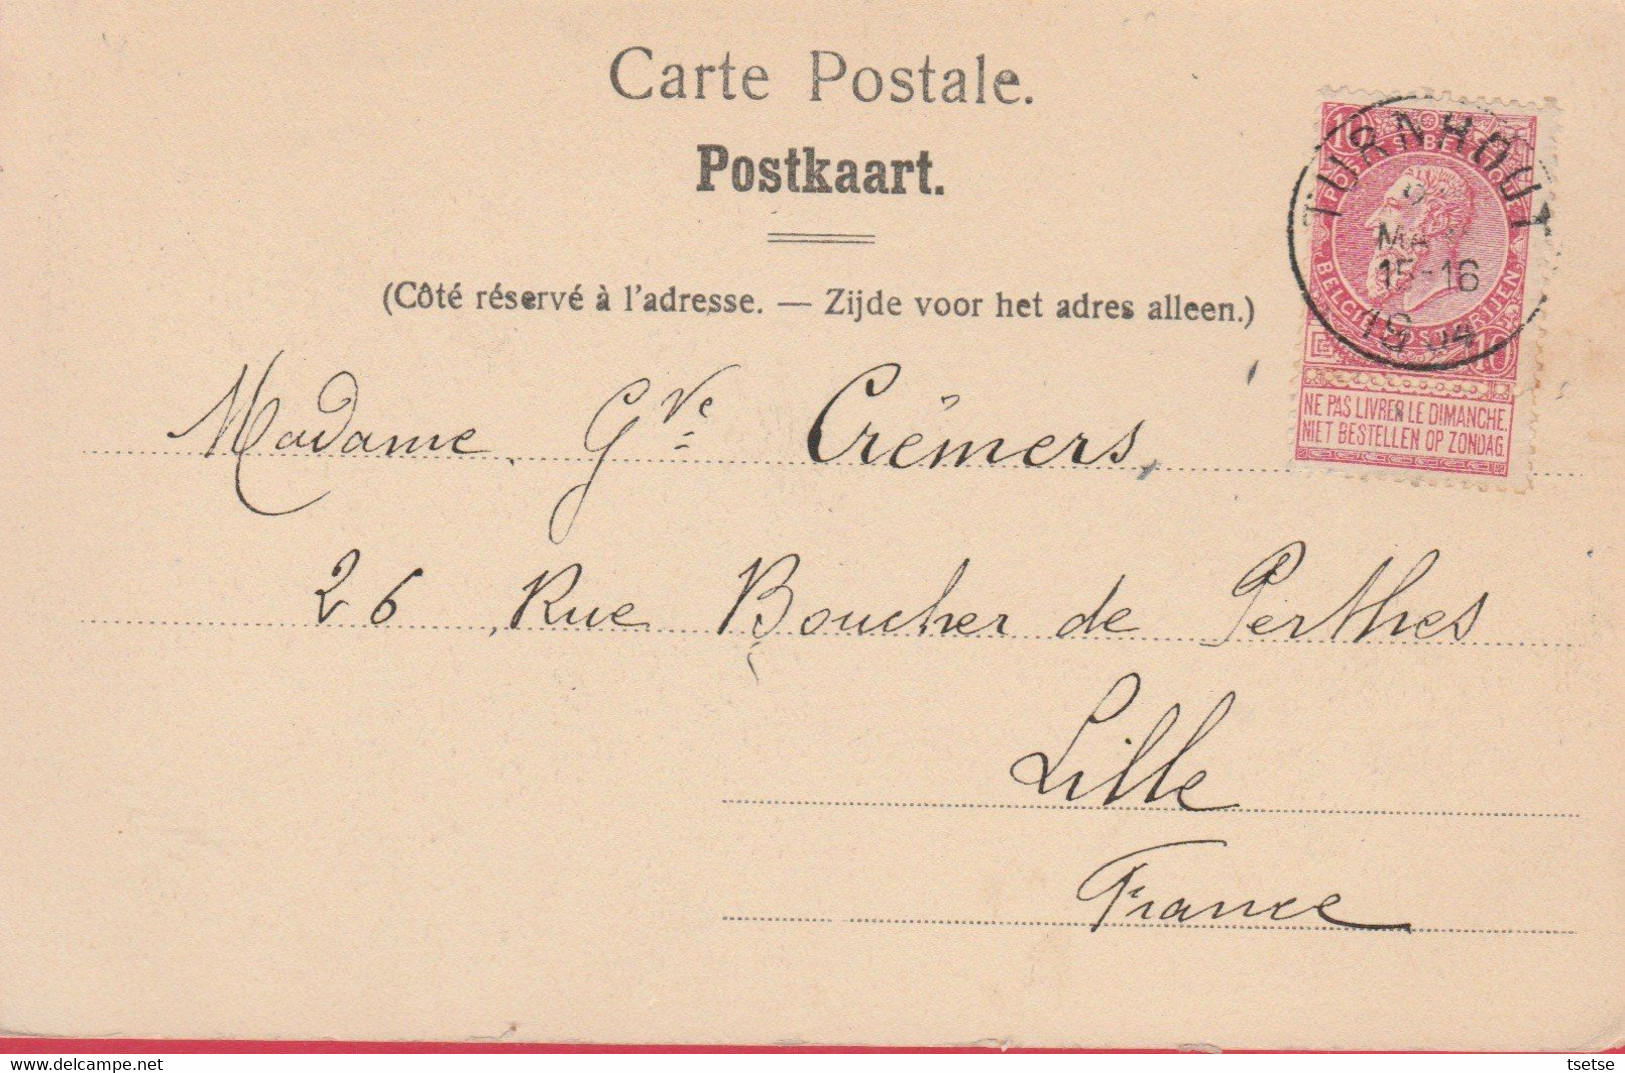 Carte Postale.
Postkaart.
(Côté réservé à l'adresse. — Zijde voor het adres alleen.)
TURNHOUT
15-16
1904
10 10
NE PAS LIVRER LE DIMANCHE.
NIET BESTELLEN OP ZONDAG.
Madame Gve Crémers,
26, Rue Boucher de Perthes
Lille
France
delcampe.net
tsetse